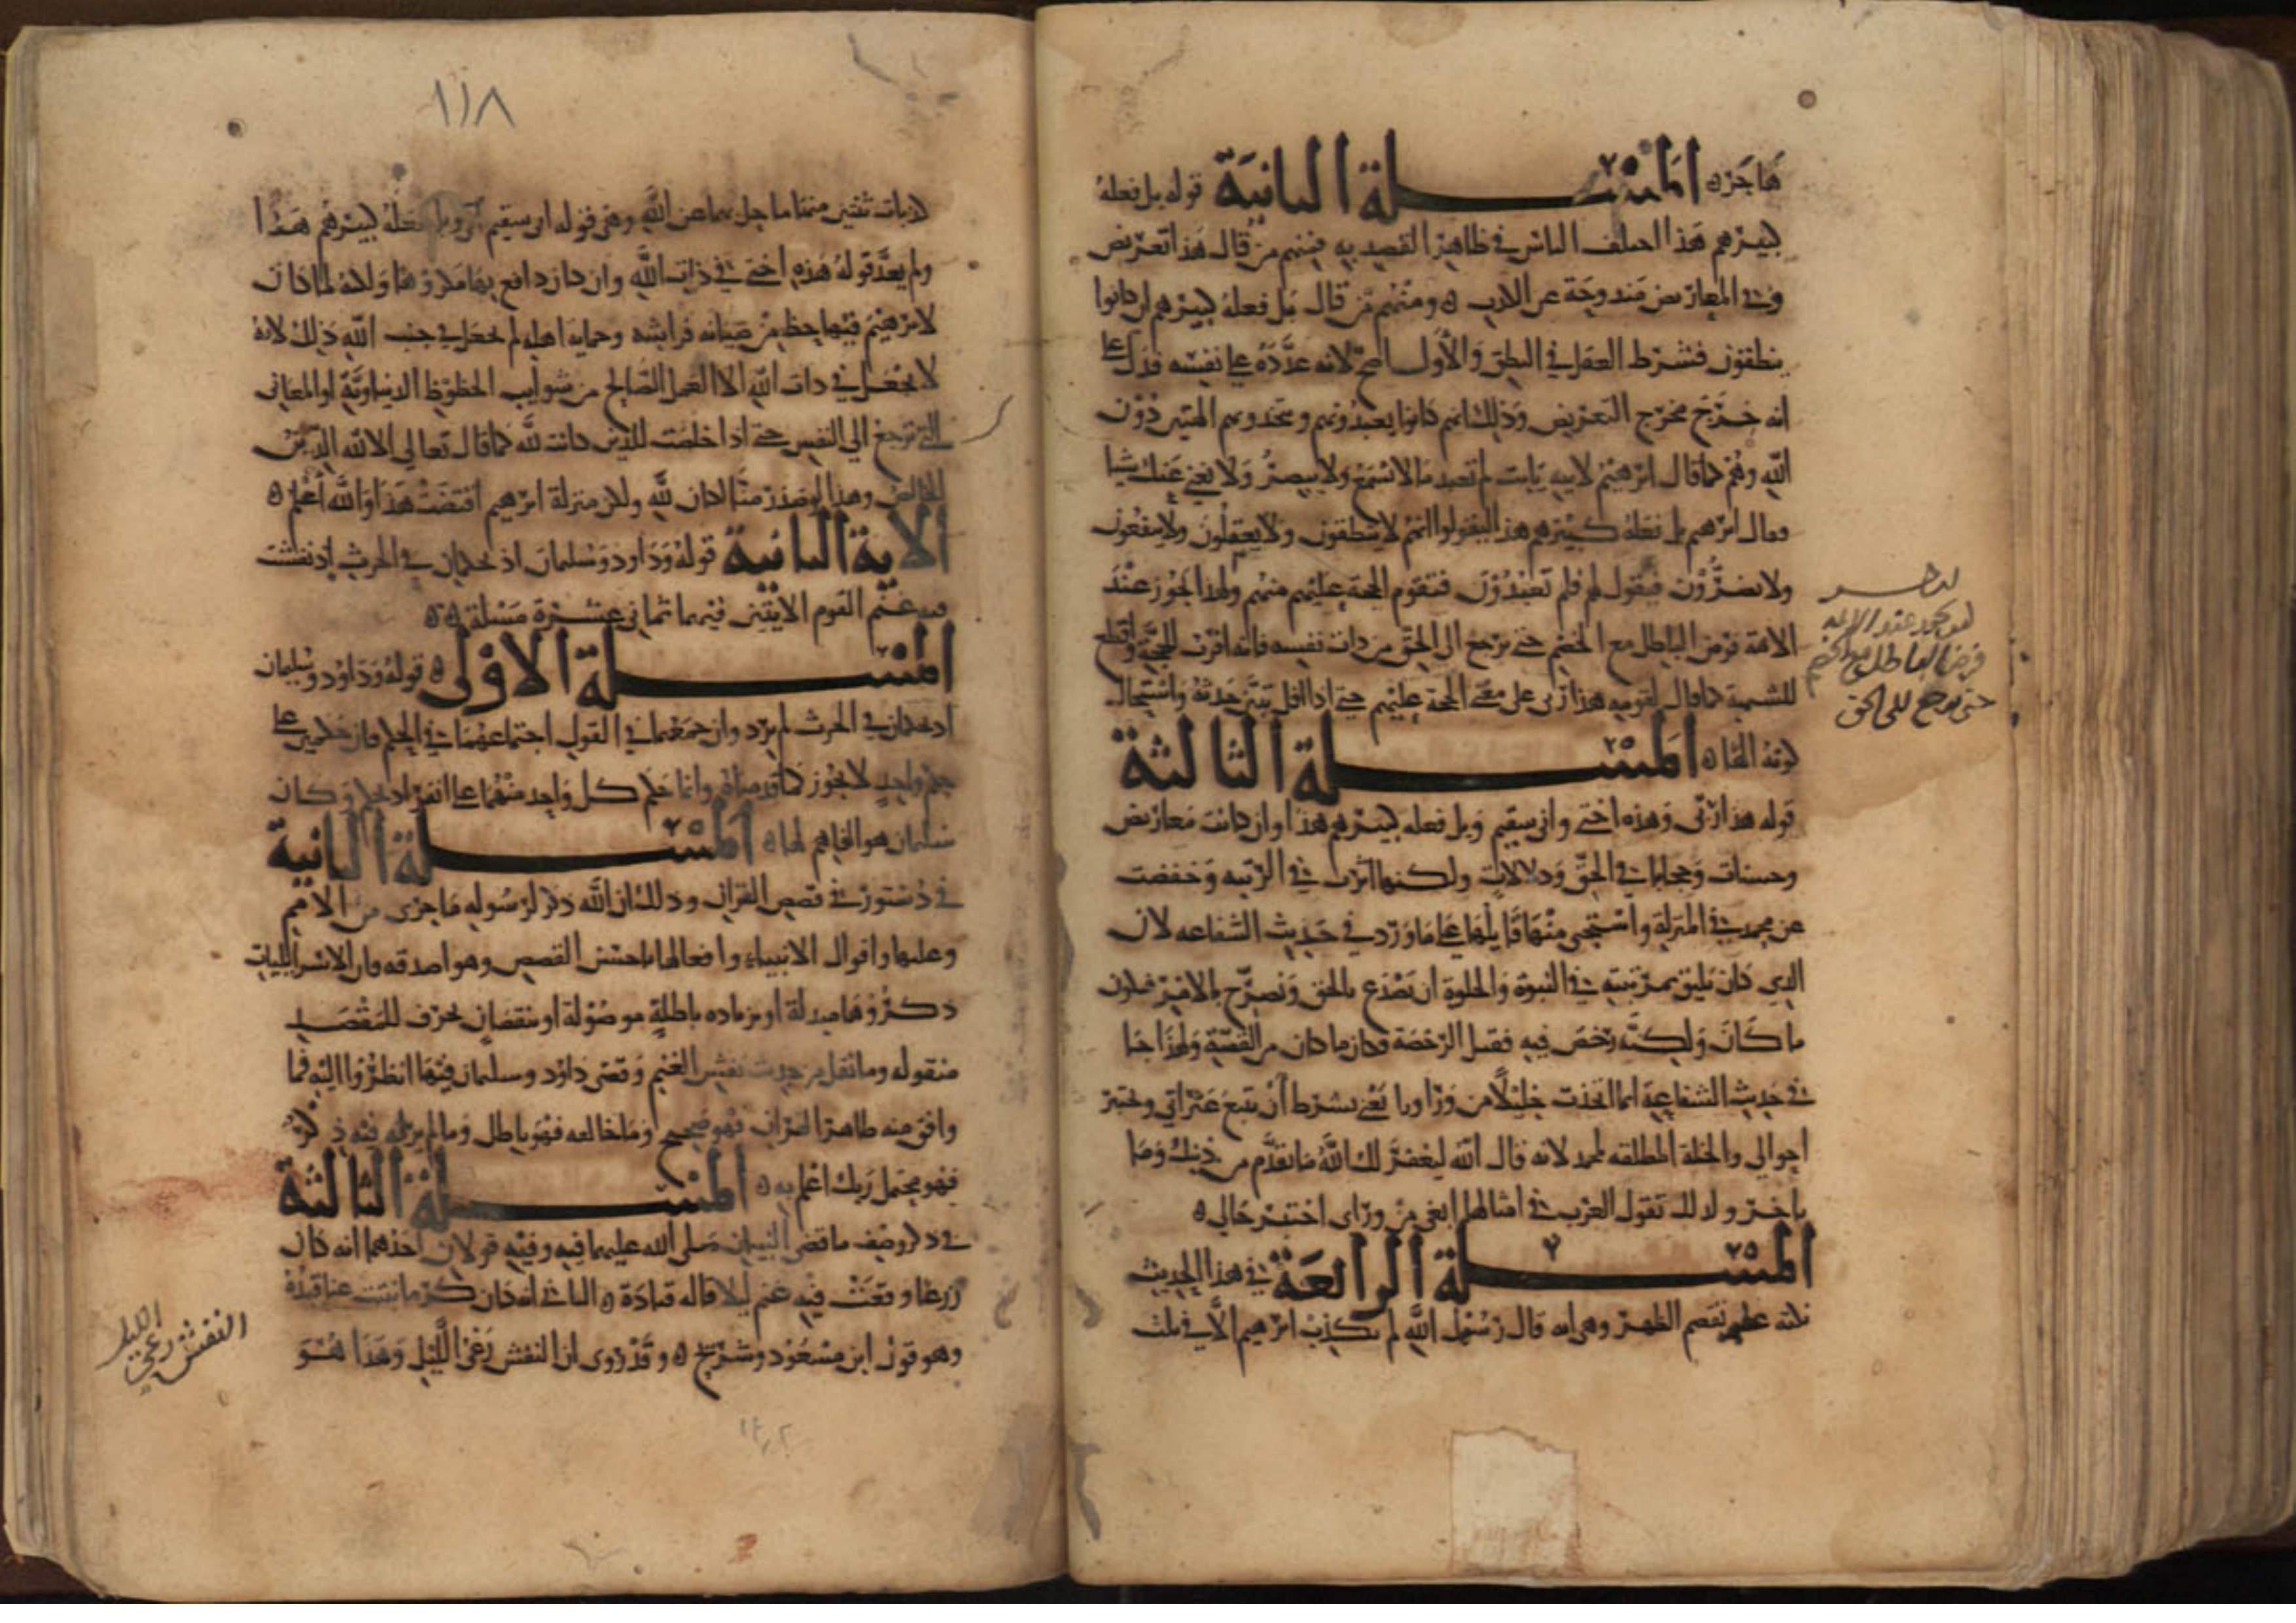 هاجر ه المسلة الثانية قوله بل فعله
كبيرهم هذا اختلف الناس في ظاهر القصد به فمنهم من قال هذا تعريض
وفي المعاريض مندوحة عن الكذب ه ومنهم من قال بل فعله كبيرهم ان كانوا
ينطقون فشرط الفعل في النطق والأول اصح لانه عدده على نفسه فدل على
انه خرج مخرج التعريض وذلك انهم كانوا يعبدونهم ويتخذونهم الهة من دون
الله وهم كما قال ابرهيم لابيه يابت لم تعبد ما لا يسمع ولا يبصر ولا يغني عنك شيا
فقال ابرهيم بل فعله كبيرهم هذا ليقولوا انهم لا ينطقون ولا يعقلون ولا ينفعون
ولا يضرون فيقول لهم فلم تعبدون فتقوم الحجة عليهم منهم ولهذا يجوز عند
الامة فرض الباطل مع الخصم حتى يرجع الى الحق من ذات نفسه فانه اقرب للحجة واقطع
للشبهة كما قال لقومه هذا ربي على معنى الحجة عليهم حتى اذا افل تبين حدثه واستحال
كونه الها ه المسلة الثالثة
قوله هذا ربي وهذه اختي واني سقيم وبل فعله كبيرهم هذا وان كانت معاريض
وحسنات وحججا في الحق ودلالات ولكنها اثرت في الرتبه وخفضت
عن محمد في المنزلة واستحيى منها قايلها على ما ورد في حديث الشفاعه لان
الذي كان يليق بمرتبته في النبوة والخلة ان يصدع بالحق ويصرح بالامر فيكون
ما كان ولكنه رخص فيه فقبل الرخصة فكان ما كان من القصة ولهذا جا
في حديث الشفاعة انما اتخذت خليلا من ورا ورا يعني بشرط أن تتبع عثراتي وتختبر
احوالي والخلة المطلقه لمحمد لانه قال الله ليغفر لك الله ما تقدم من ذنبك وما
تاخر ولذلك تقول العرب في امثالها ابغي من وراى اختبر حالي ه
المسلة الرابعة في هذا الحديث
نكتة عظمى تقصم الظهر وهي انه قال رسول الله لم يكذب ابرهيم الا في ثلث
لا يجوز عند الامة
فرض الباطل مع الخصم
حتى يرجع الى الحق
١١٨
كذبات ثنتين منها ما حل بهما عن الله وهي قوله اني سقيم وبل فعله كبيرهم هذا
ولم يعد قوله هذه اختي في ذات الله وان كان دافع بها مكروها ولكنه لما كان
لابرهيم فيها حظ من صيانة فراشه وحماية اهله لم يجعل في جنب الله ذلك لانه
لا يجعل في ذات الله الا العمل الصالح من شوايب الحظوظ الدنياوية او المعاني
التي ترجع الي النفس حتى اذا خلصت للدين كانت لله كما قال تعالي الا لله الدين
الخالص وهذا لو صدر منا لكان لله ولكن منزلة ابرهيم اقتضت هذا والله أعلم ه
الاية الثانية قوله وداود وسليمان اذ يحكمان في الحرث إذ نفشت
فيه غنم القوم الايتين فيهما ثماني عشرة مسلة ه ه
المسلة الاولى ه قوله وداود وسليمان
اذ يحكمان في الحرث لم يرد وان جمعهما في القول اجتماعهما في الحكم فان حكمين على
حكم واحد لا يجوز كما وانما حكم كل واحد منهما على انفراد بحكم وكان
سليمان هو الفاهم لها ه المسلة الثانية
في دستور في قصص القران وذلك ان الله ذكر لرسوله ما جرى من الامم
وعليها واقوال الانبياء وافعالها باحسن القصص وهو اصدقه فان الاسرايليات
ذكروها مبدلة او بزيادة باطلة موصولة او بنقصان محرف للمقصد
منقوله وما نقل من حديث نفش الغنم وقضى داود وسليمان فيها انظروا اليه فما
وافق منه ظاهر القران فهو صحيح وما خالفه فهو باطل وما لم يرد له فيه ذكر
فهو محتمل ربك اعلم به ه المسلة الثالثة
في ذكر وصف ما قضى النبيان صلى الله عليهما فيه وفيه قولان احدهما انه كان
زرعا وقعت فيه غنم ليلا قاله قتادة ه الثاني انه كان كرما نبتت عناقيده
وهو قول ابن مسعود وشريح ه وقد روى ان النفش رعي الليل وهذا هو
النفش رعي الليل